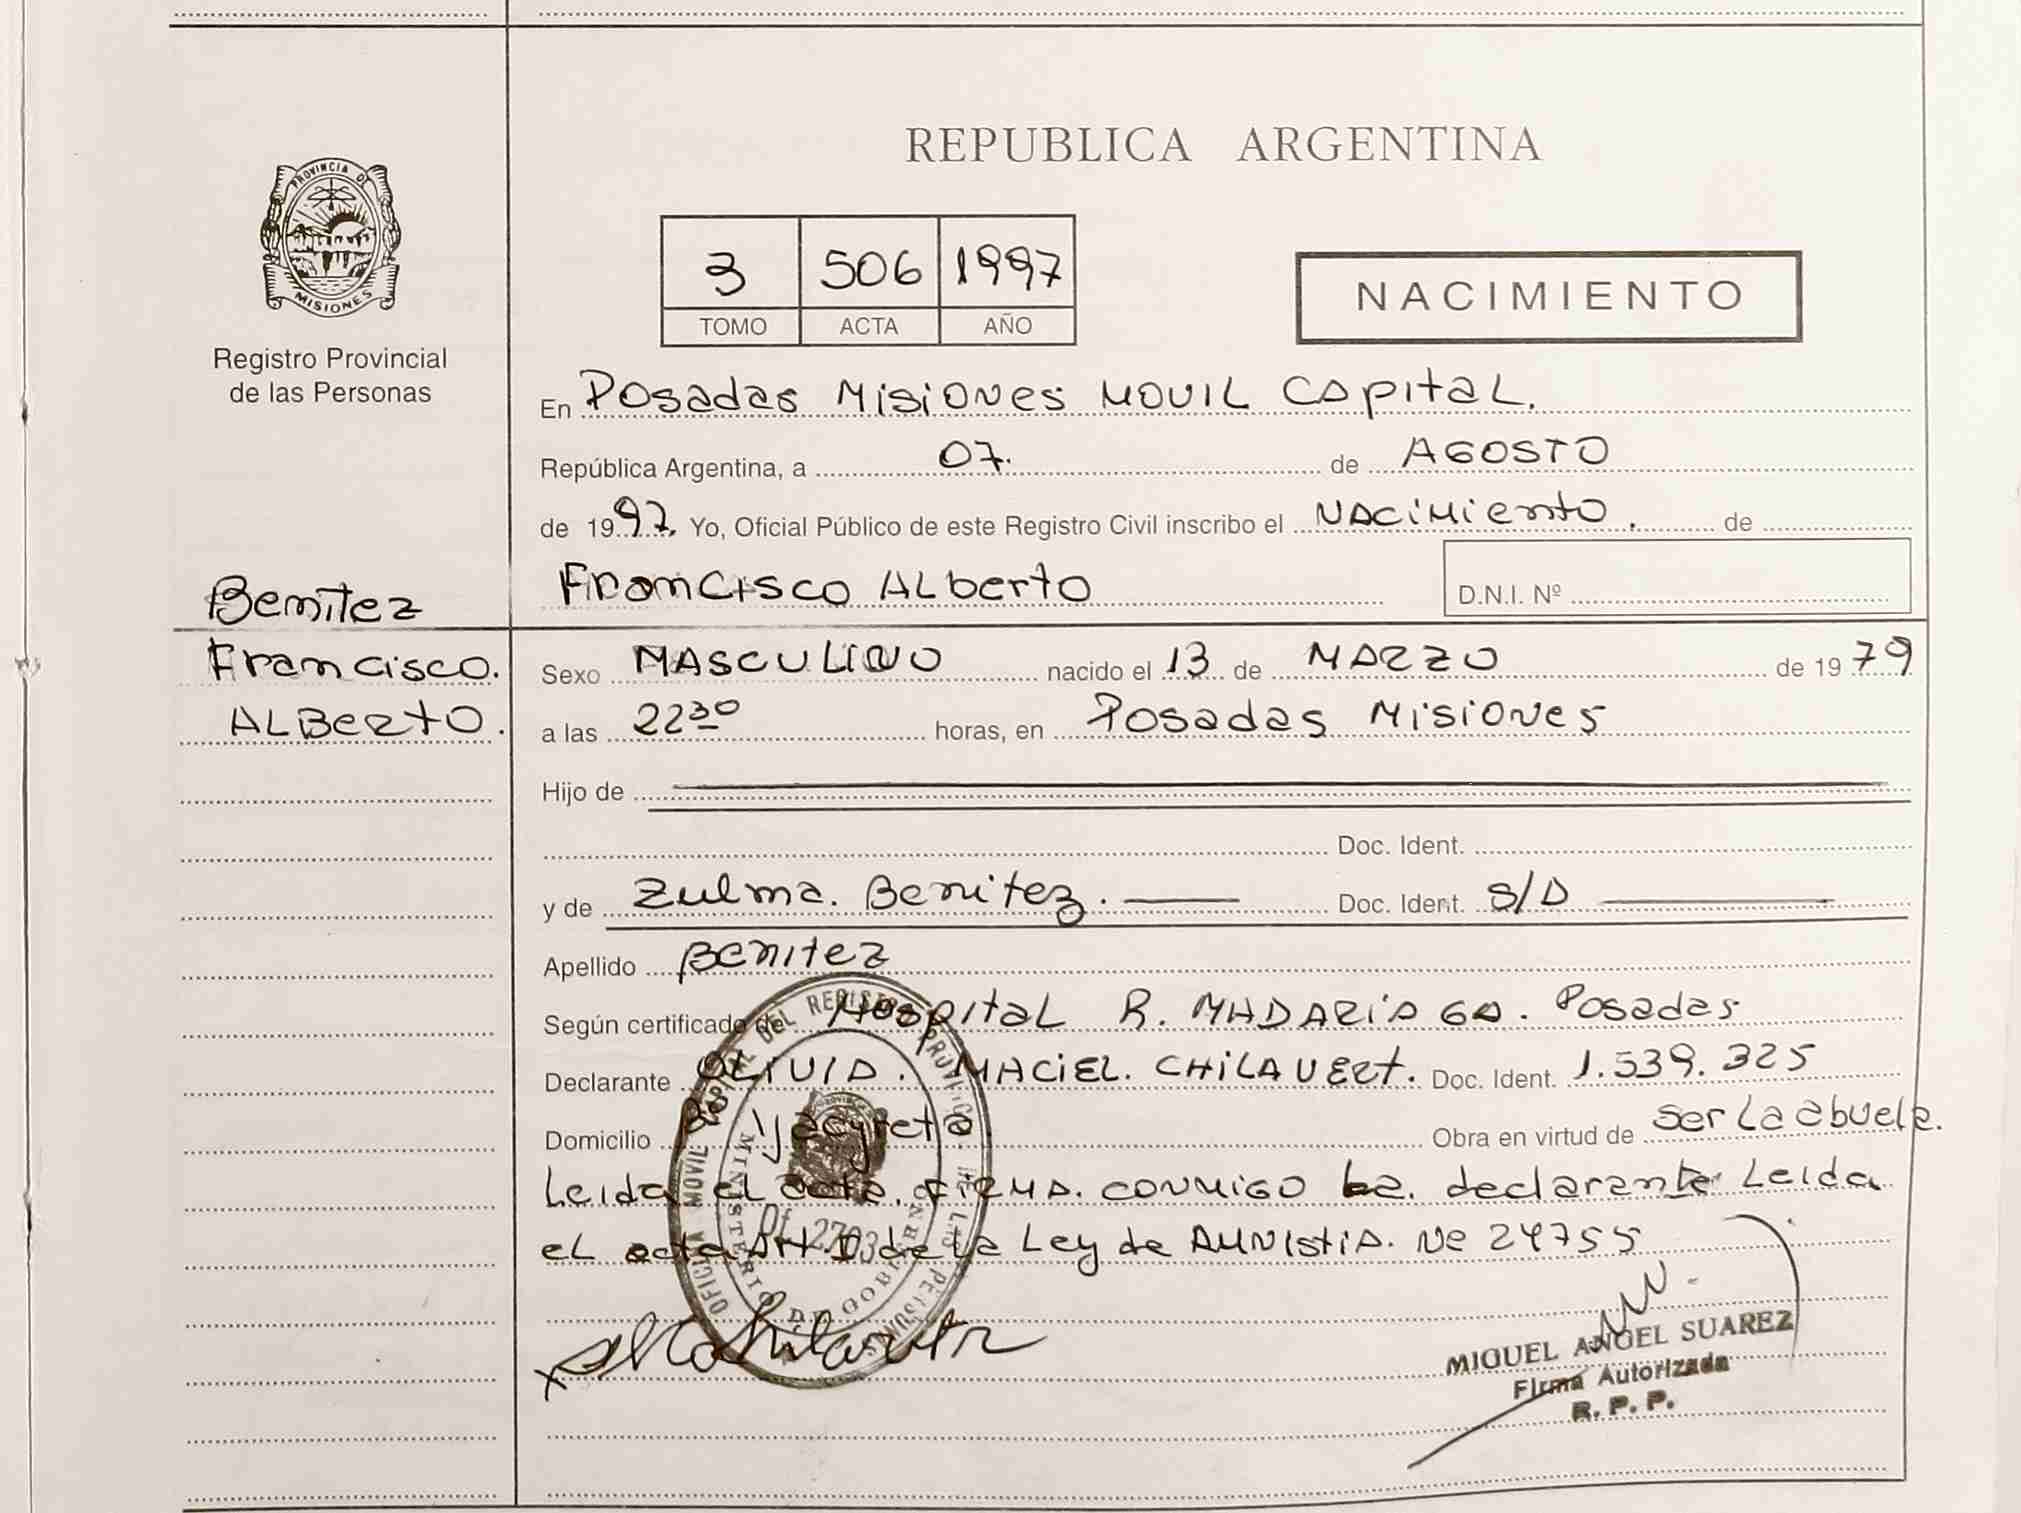 REPUBLICA ARGENTINA
PROVINCIA DE
MISIONES
Registro Provincial
de las Personas
3 506 1997
TOMO ACTA AÑO
NACIMIENTO
En Posadas Misiones Movil Capital.
República Argentina, a 07. de AGOSTO
de 1997. Yo, Oficial Público de este Registro Civil inscribo el Nacimiento. de
Francisco Alberto D.N.I. Nº
Benitez
Francisco.
ALBerto.
Sexo MASCULINO nacido el 13 de MARZO de 1979
a las 22 30 horas, en Posadas Misiones
Hijo de
Doc. Ident.
y de Zulma. Benitez. Doc. Ident. S/D
Apellido Benitez
Según certificado de Hospital R. MADARIAGA. Posadas
Declarante OLIVIA. MACIEL. CHILAVERT. Doc. Ident. 1.539.325
Domicilio Yacyreta Obra en virtud de Ser La abuela.
Leida el acta. FIRMA. CONMIGO La. declarante Leida
el acta Art 1 de la Ley de AMNistia. Nº 24755
OFICINA MOVIL CAPITAL DEL REGISTRO PROVINCIAL DE LAS PERSONAS
MINISTERIO DE GOBIERNO
MIGUEL ANGEL SUAREZ
Firma Autorizada
R. P. P.